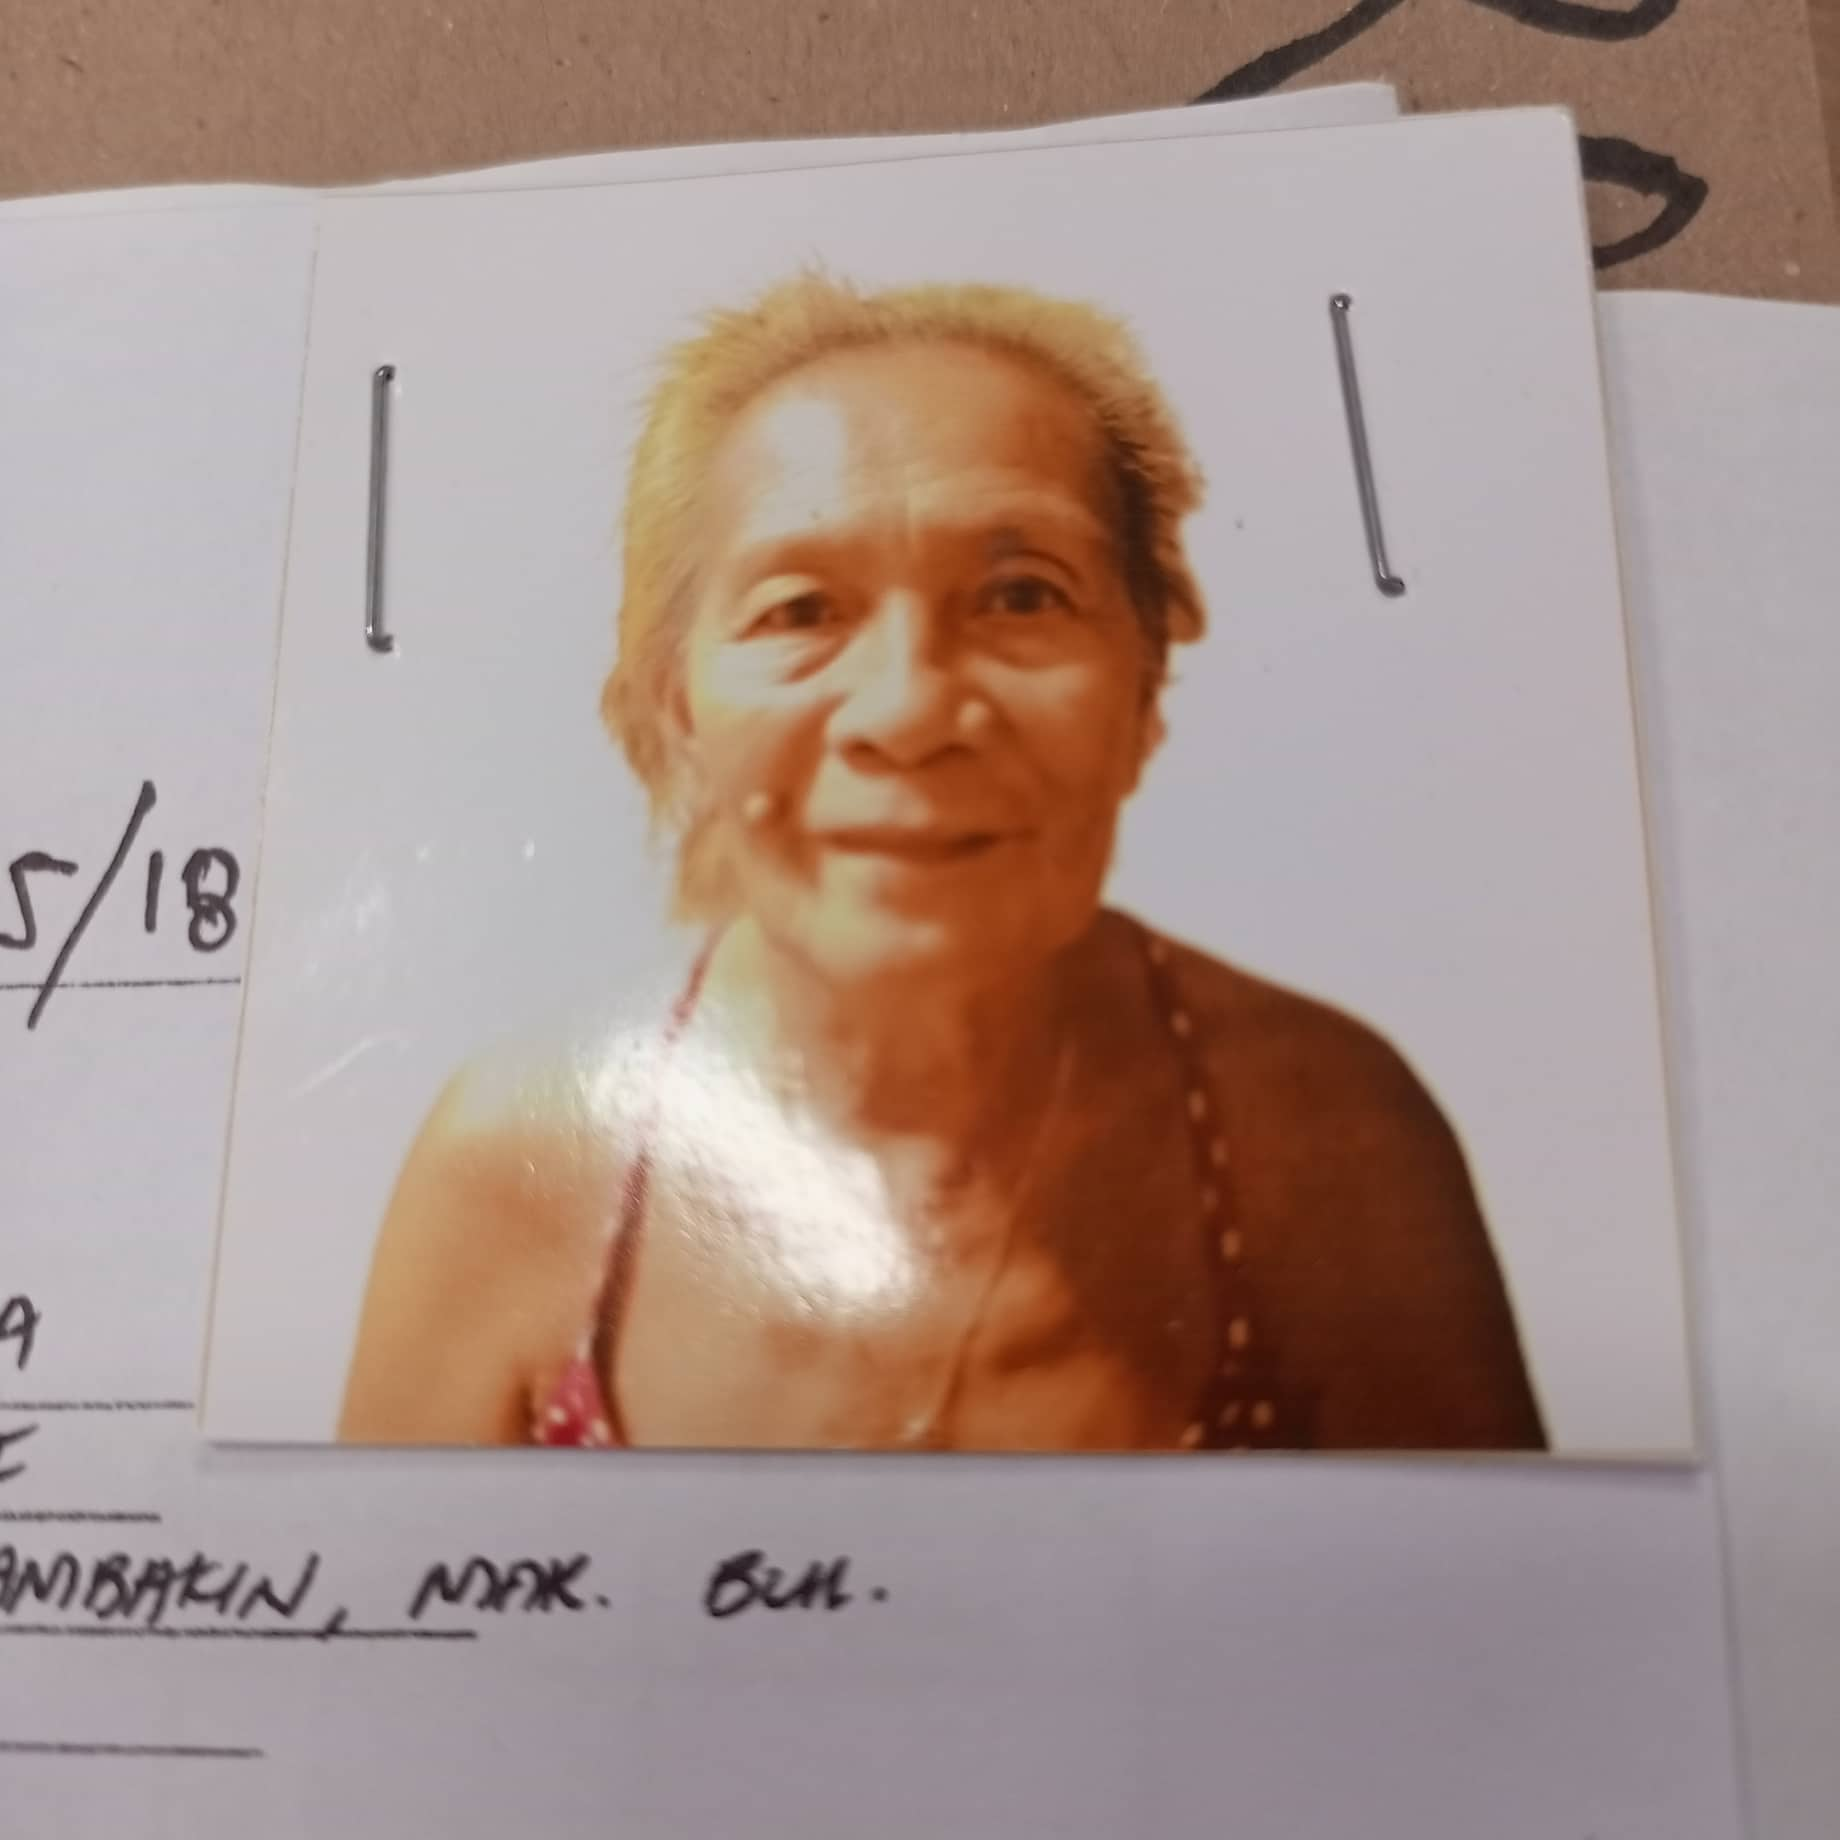 5/18
A
E
AMBAKIN, MAK. BUL.